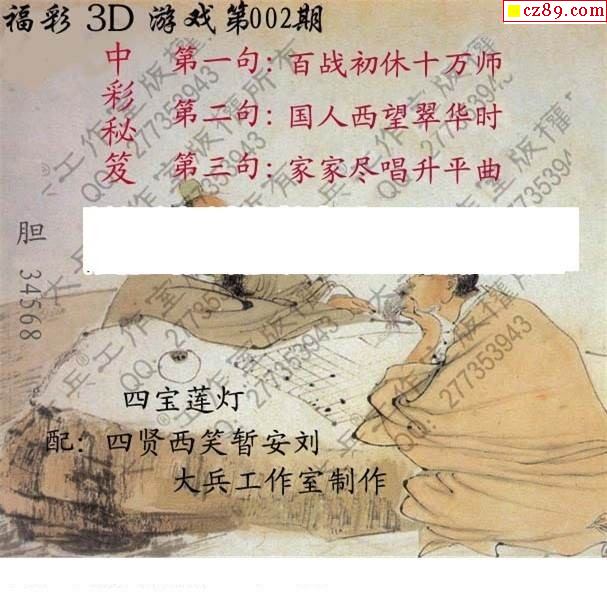 福彩 3D 游戏第002期
cz89.com
中彩秘笈
第一句：百战初休十万师
第二句：国人西望翠华时
第三句：家家尽唱升平曲
胆 34568
四宝莲灯
配：四贤西笑暂安刘
大兵工作室制作
大兵®工作室版权所有
QQ：277353943